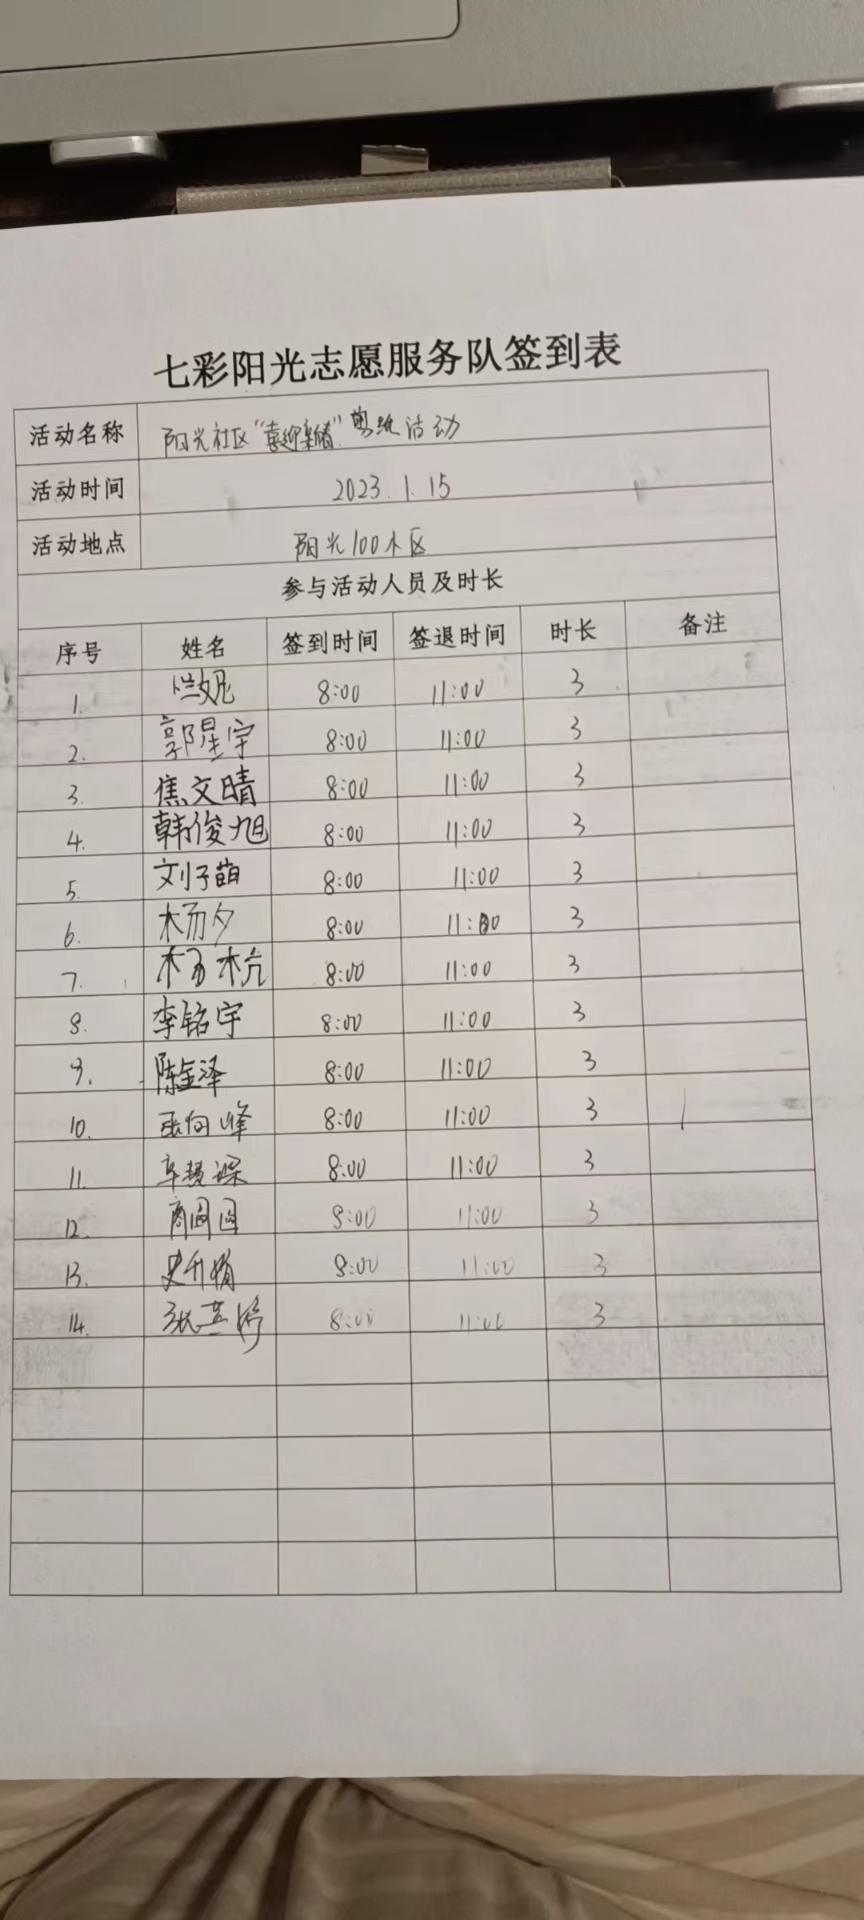 七彩阳光志愿服务队签到表
活动名称 阳光社区"喜迎新春"剪纸活动
活动时间 2023.1.15
活动地点 阳光100小区
参与活动人员及时长
序号 姓名 签到时间 签退时间 时长 备注
1. 8:00 11:00 3
2. 郭星宇 8:00 11:00 3
3. 焦文晴 8:00 11:00 3
4. 韩俊旭 8:00 11:00 3
5. 刘子萌 8:00 11:00 3
6. 杨夕 8:00 11:00 3
7. 杨杭 8:00 11:00 3
8. 李铭宇 8:00 11:00 3
9. 陈金泽 8:00 11:00 3
10. 张向峰 8:00 11:00 3
11. 8:00 11:00 3
12. 商圆圆 8:00 11:00 3
13. 史升娟 8:00 11:00 3
14. 张 婷 8:00 11:00 3